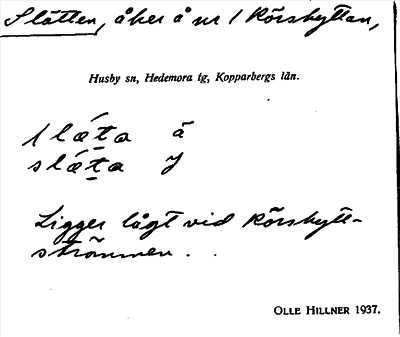 Slätten, åker å nr 1 Körshyttan,
Husby sn, Hedemora tg, Kopparbergs län.
slǽta å
slǽta y
Ligger lågt vid Körshytt-
strömmen.
OLLE HILLNER 1937.